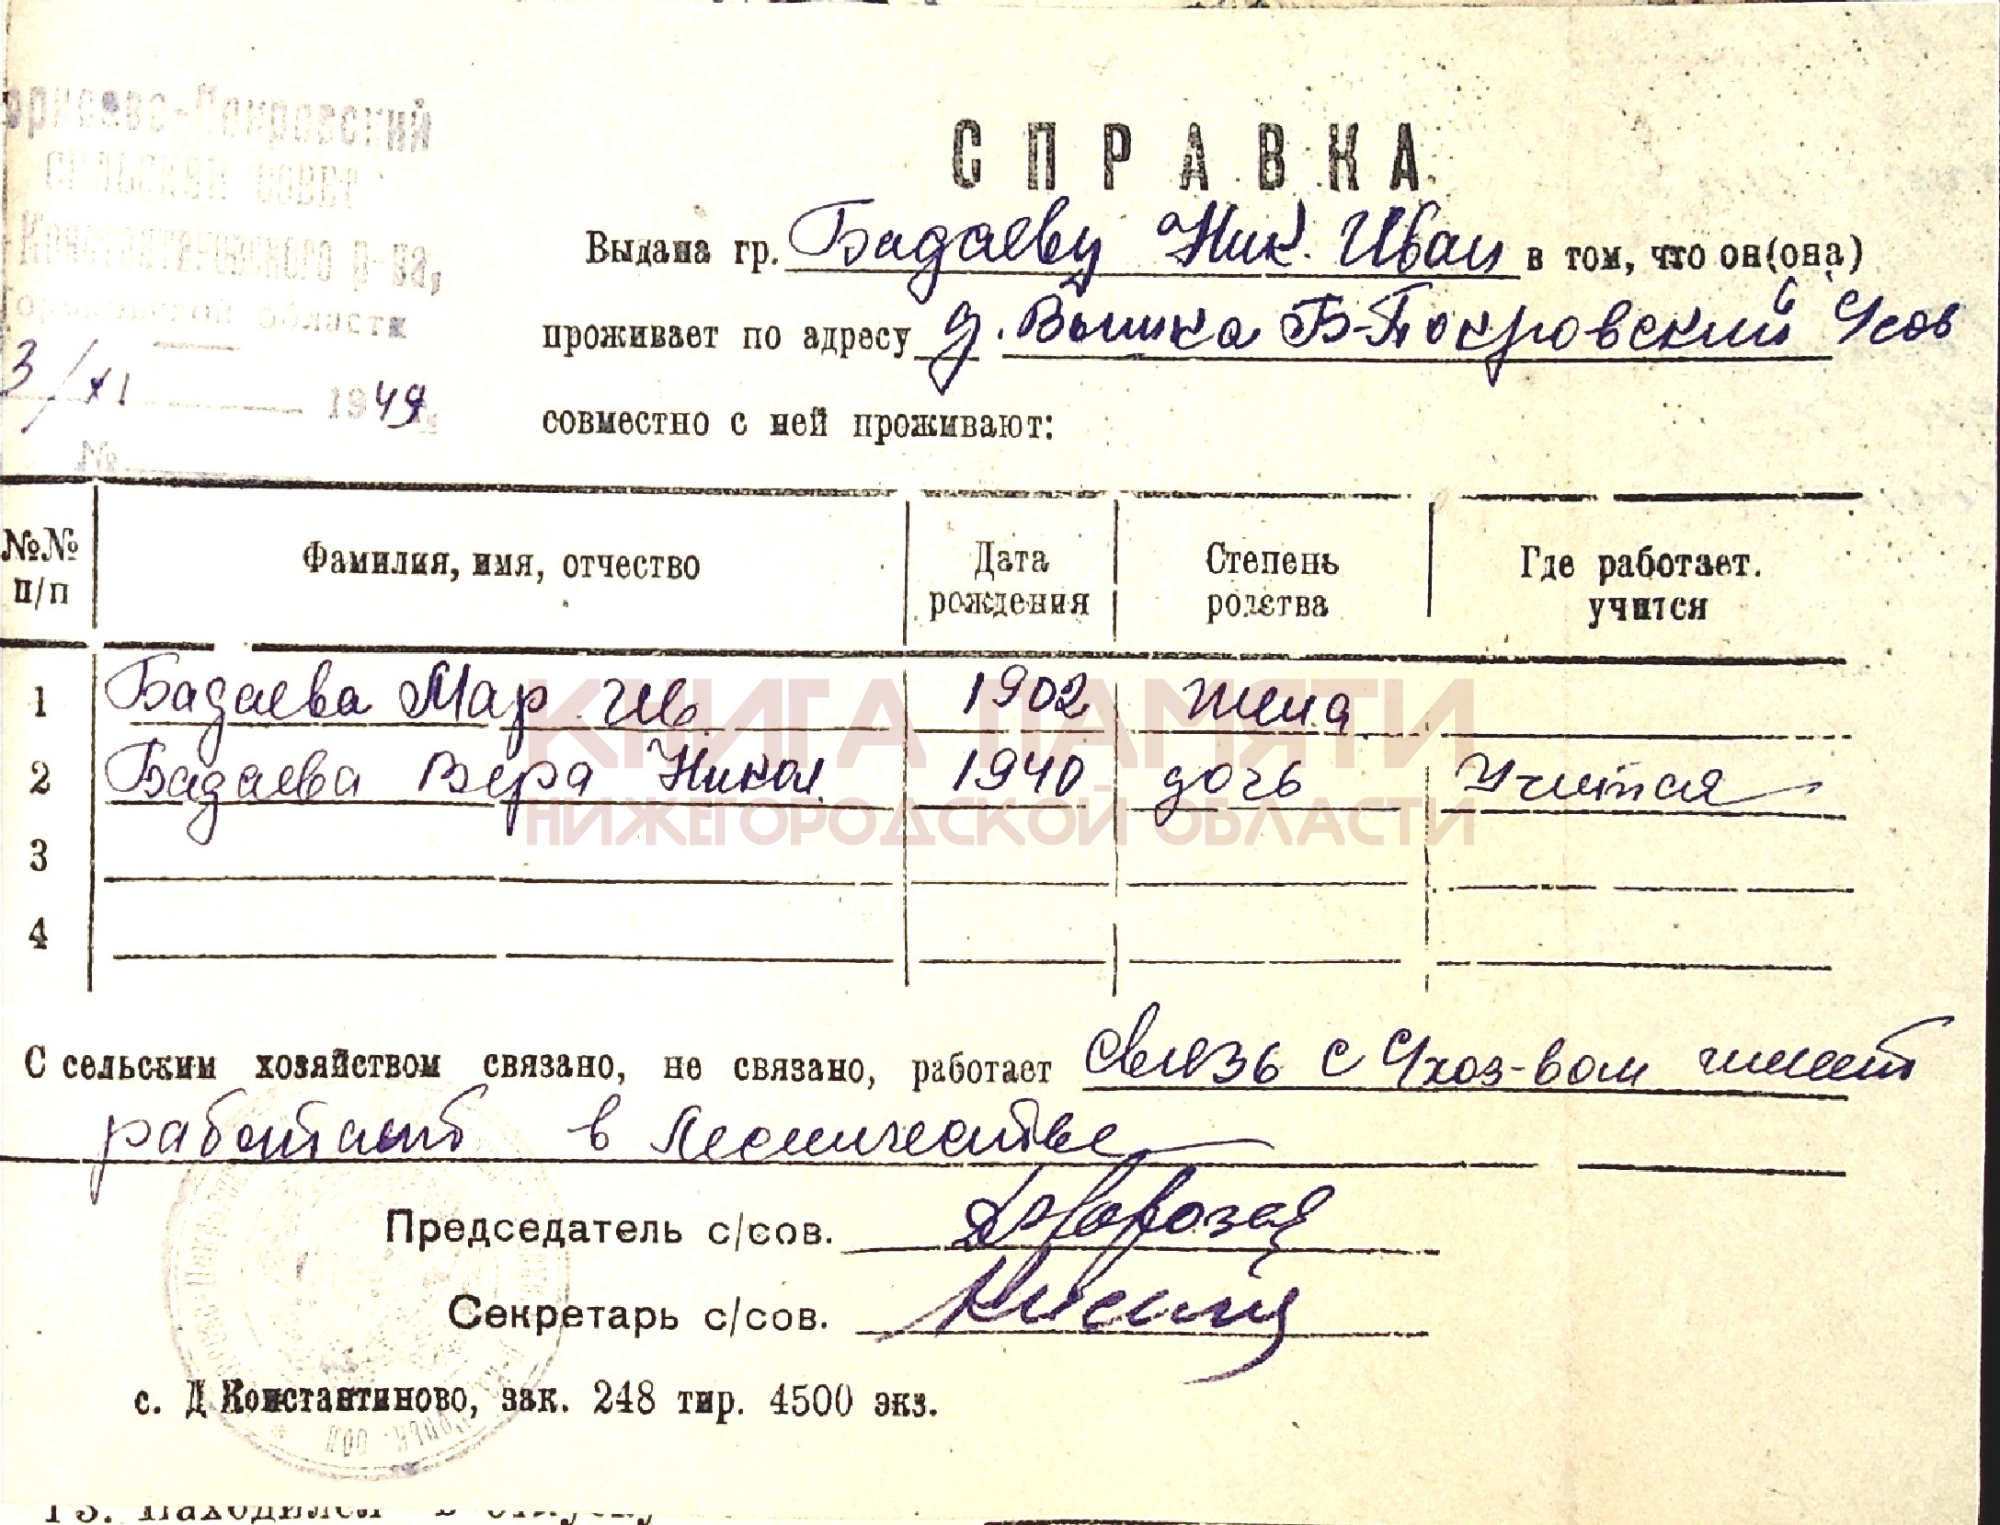 Борисово-Покровский
сельский совет
Константиновского р-на,
Горьковской области
3/XI 1949
№
СПРАВКА
Выдана гр. Бадаеву Ник. Иван в том, что он(она)
проживает по адресу д. Вышка Б-Покровский
совместно с ней проживают:
№№ п/п Фамилия, имя, отчество Дата рождения Степень родства Где работает. учится
1 Бадаева Мар Ив 1902 жена
2 Бадаева Вера Никол 1940 дочь Учится
3
4
КНИГА ПАМЯТИ
НИЖЕГОРОДСКОЙ ОБЛАСТИ
С сельским хозяйством связано, не связано, работает связь с с/хоз-вом имеет
работает в лесничестве
Председатель с/сов.
Секретарь с/сов.
с. Д Константиново, зак. 248 тир. 4500 экз.
13. Находился в отпуску